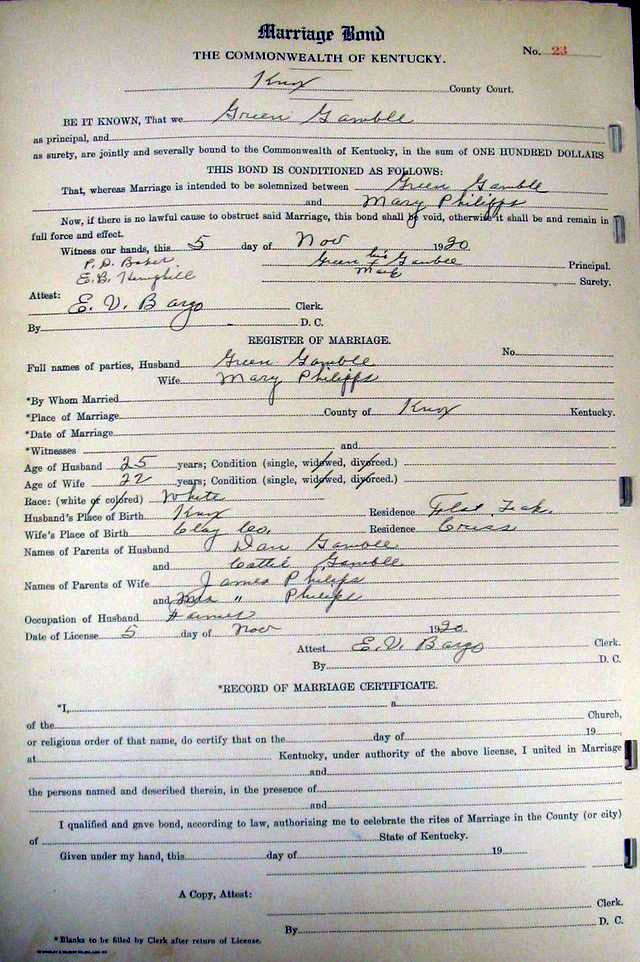 Marriage Bond
THE COMMONWEALTH OF KENTUCKY.
No. 23
Knox County Court.
BE IT KNOWN, That we Green Gamble
as principal, and
as surety, are jointly and severally bound to the Commonwealth of Kentucky, in the sum of ONE HUNDRED DOLLARS
THIS BOND IS CONDITIONED AS FOLLOWS:
That, whereas Marriage is intended to be solemnized between Green Gamble
and Mary Philipps
Now, if there is no lawful cause to obstruct said Marriage, this bond shall be void, otherwise it shall be and remain in
full force and effect.
Witness our hands, this 5 day of Nov 1920
P. D. Baker Green his x mark Gamble Principal.
E. B. Surety.
Attest: E. V. Bargo Clerk.
By D. C.
REGISTER OF MARRIAGE.
No.
Full names of parties, Husband Green Gamble
Wife Mary Philipps
*By Whom Married
*Place of Marriage County of Knox Kentucky.
*Date of Marriage
*Witnesses and
Age of Husband 25 years; Condition (single, widowed, divorced.)
Age of Wife 22 years; Condition (single, widowed, divorced.)
Race: (white or colored) White
Husband's Place of Birth Knox Residence Flat
Wife's Place of Birth Clay Co. Residence
Names of Parents of Husband Dan Gamble
and Gamble
Names of Parents of Wife James Philips
and Mrs " Philips
Occupation of Husband Farmer
Date of License 5 day of Nov 1920
Attest E. V. Bargo Clerk.
By D. C.
*RECORD OF MARRIAGE CERTIFICATE.
*I, a
of the Church,
or religious order of that name, do certify that on the day of 19
at Kentucky, under authority of the above license, I united in Marriage
and
the persons named and described therein, in the presence of
and
I qualified and gave bond, according to law, authorizing me to celebrate the rites of Marriage in the County (or city)
of State of Kentucky.
Given under my hand, this day of 19
A Copy, Attest:
Clerk.
By D. C.
*Blanks to be filled by Clerk after return of License.